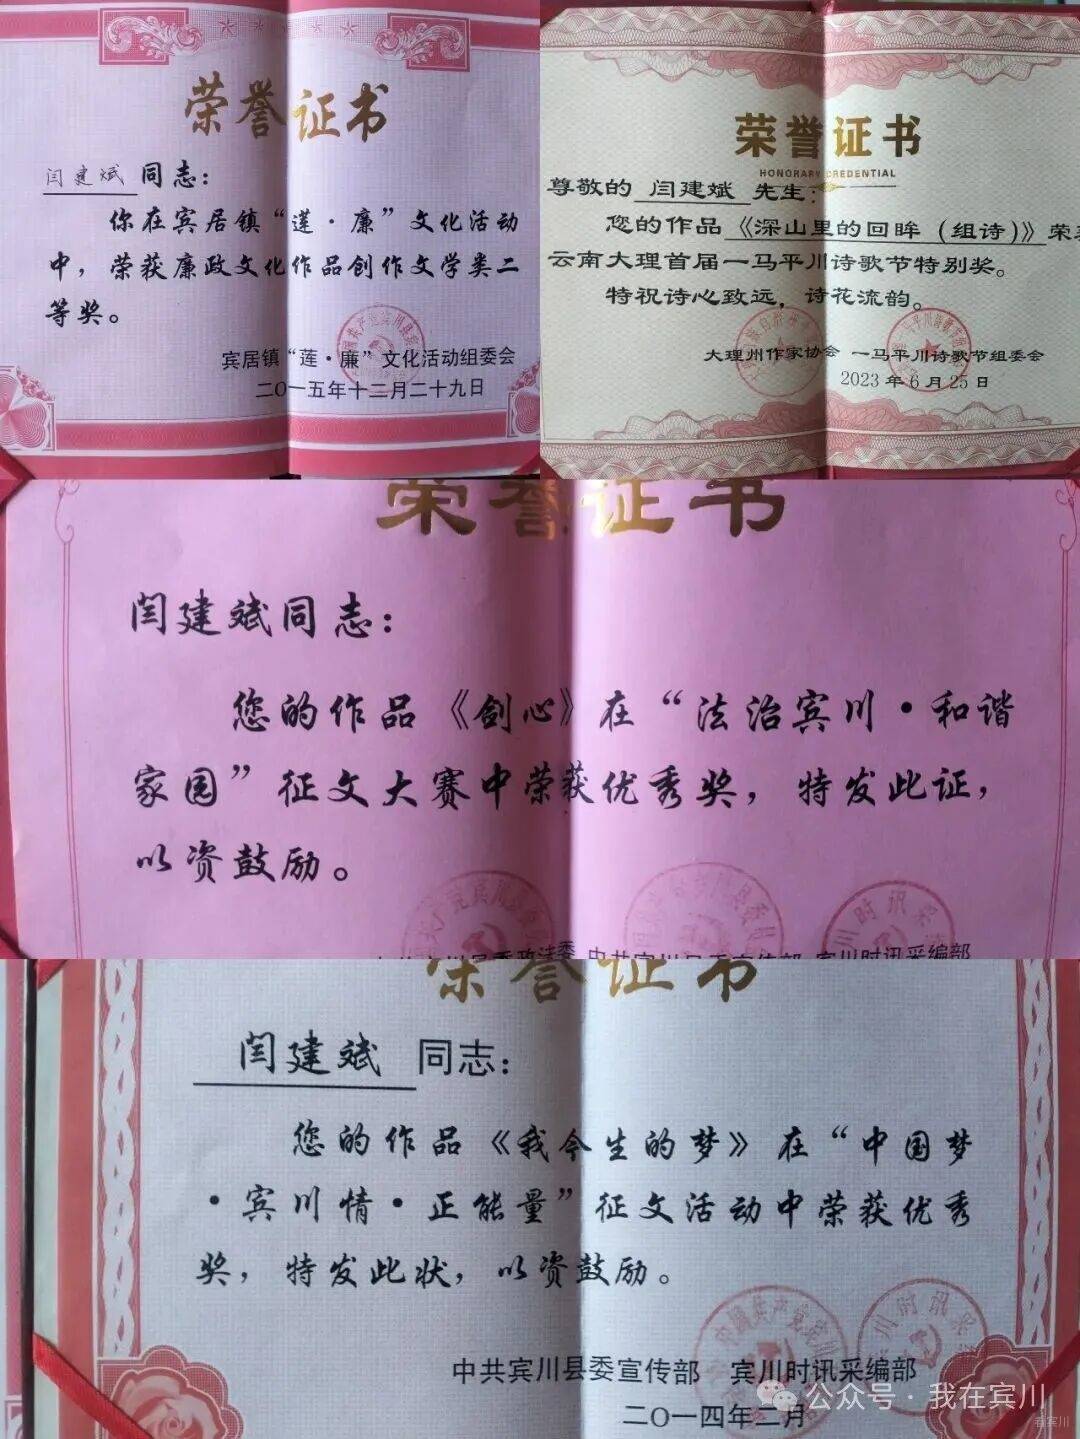 荣誉证书
闫建斌 同志：
你在宾居镇“莲·廉”文化活动
中，荣获廉政文化作品创作文学类二
等奖。
宾居镇“莲·廉”文化活动组委会
二〇一五年十二月二十九日
荣誉证书
HONORARY CREDENTIAL
尊敬的 闫建斌 先生：
您的作品《深山里的回眸（组诗）》荣
云南大理首届一马平川诗歌节特别奖。
特祝诗心致远，诗花流韵。
大理州作家协会 一马平川诗歌节组委会
2023 年 6 月 25 日
荣誉证书
闫建斌同志：
您的作品《剑心》在“法治宾川·和谐
家园”征文大赛中荣获优秀奖，特发此证，
以资鼓励。
川时讯采
中共宾川县委宣传部 宾川时讯采编部
荣誉证书
闫建斌 同志：
您的作品《我今生的梦》在“中国梦
·宾川情·正能量”征文活动中荣获优秀
奖，特发此状，以资鼓励。
川时讯采
中共宾川县委宣传部 宾川时讯采编部
二〇一四年二月
公众号·我在宾川